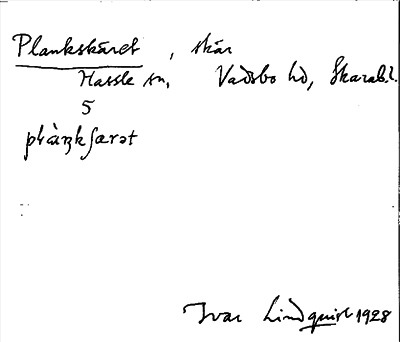 Plankskäret, skär
Hassle sn, Vadsbo hd, Skarab.l.
5
plàŋkʃærət
Ivar Lindquist 1928